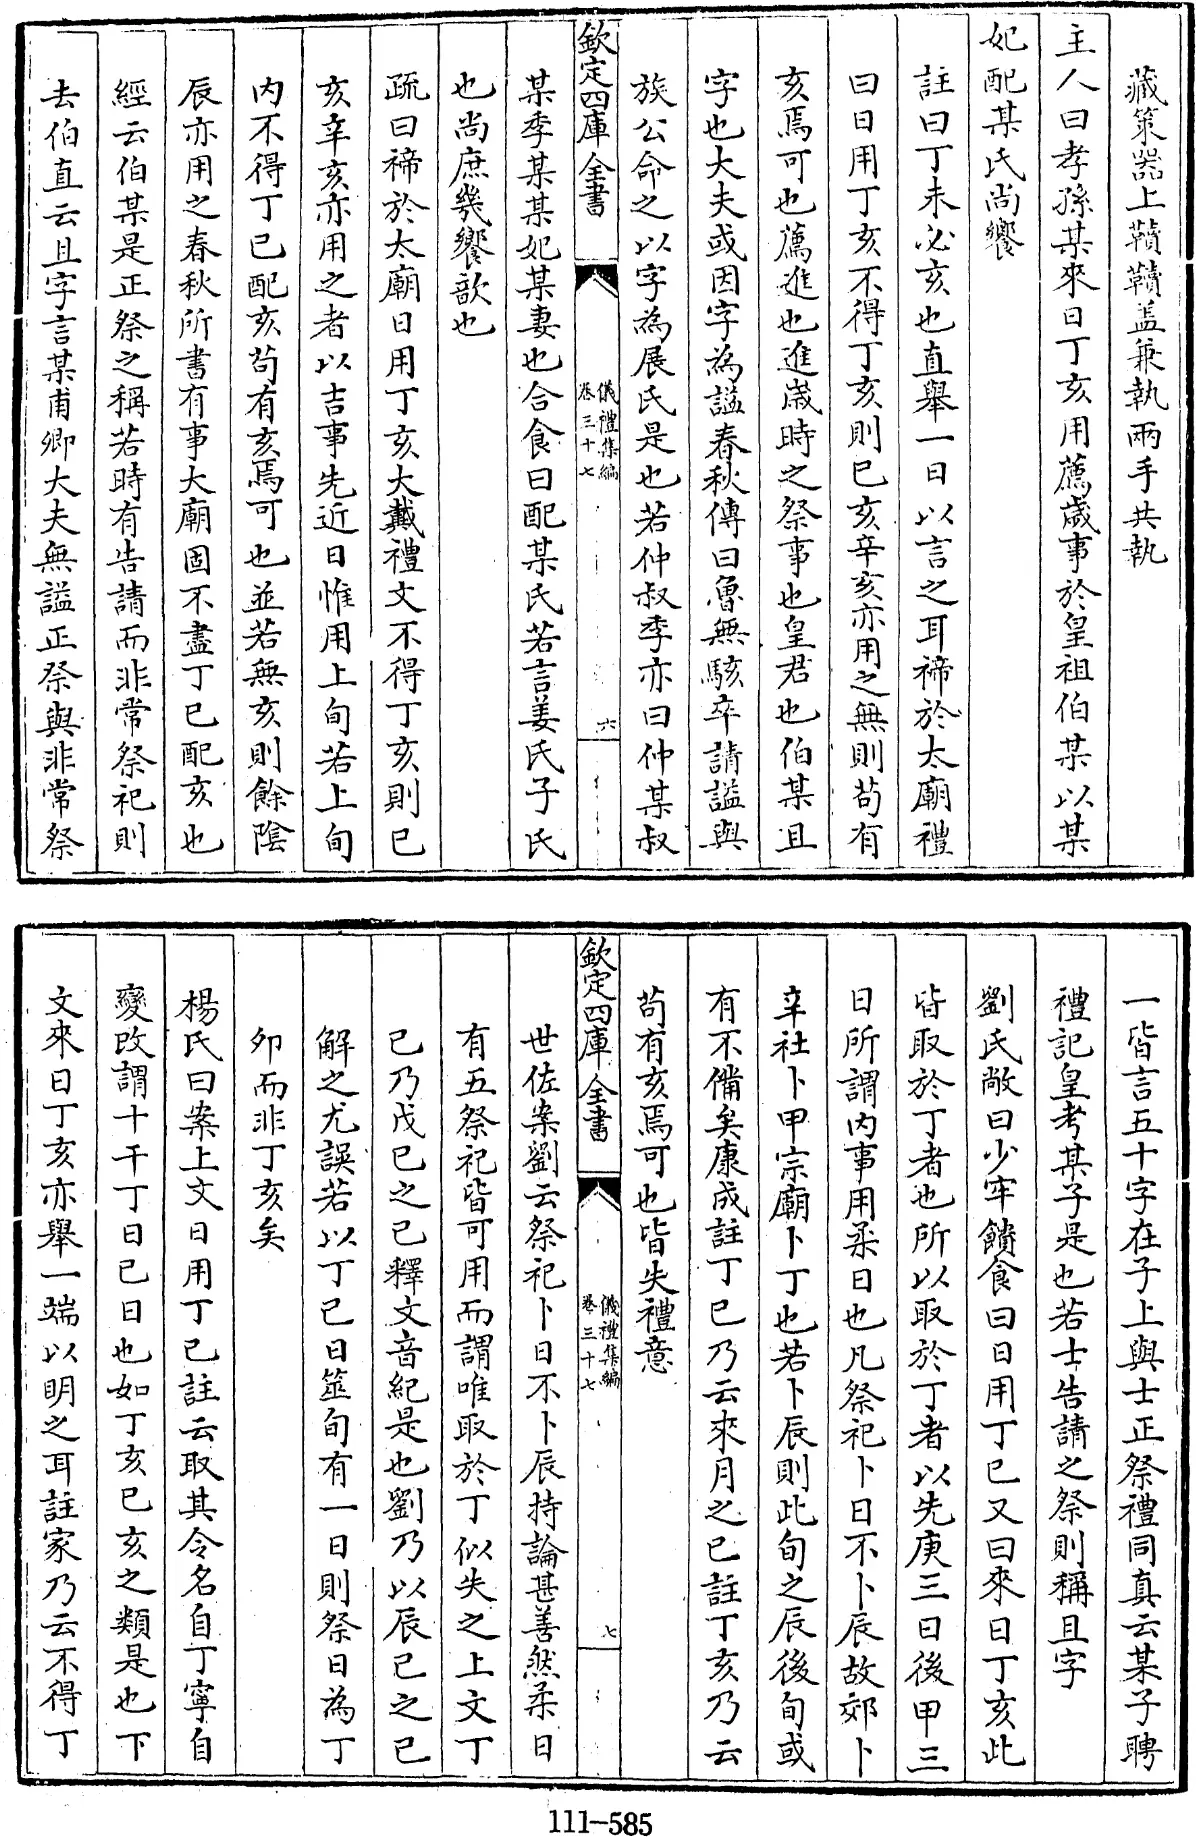 藏筴器上韇韇盖兼執兩手共執
主人曰孝孫某來日丁亥用薦歲事於皇祖伯某以某
妃配某氏尚饗
註曰丁未必亥也直舉一日以言之耳禘於太廟禮
曰日用丁亥不得丁亥則已亥辛亥亦用之無則苟有
亥焉可也薦進也進歲時之祭事也皇君也伯某且
字也大夫或因字為謚春秋傳曰魯無駭卒請謚與
族公命之以字為展氏是也若仲叔季亦曰仲某叔
欽定四庫全書
儀禮集編
卷三十七
六
某季某某妃某妻也合食曰配某氏若言姜氏子氏
也尚庶幾饗歆也
疏曰禘於太廟日用丁亥大戴禮文不得丁亥則已
亥辛亥亦用之者以吉事先近日惟用上旬若上旬
内不得丁已配亥苟有亥焉可也並若無亥則餘陰
辰亦用之春秋所書有事大廟固不盡丁已配亥也
經云伯某是正祭之稱若時有告請而非常祭祀則
去伯直云且字言某甫卿大夫無謚正祭與非常祭
一皆言五十字在子上與士正祭禮同真云某子聘
禮記皇考某子是也若士告請之祭則稱且字
劉氏敞曰少牢饋食曰日用丁已又曰來日丁亥此
皆取於丁者也所以取於丁者以先庚三日後甲三
日所謂内事用柔日也凡祭祀卜日不卜辰故郊卜
辛社卜甲宗廟卜丁也若卜辰則此旬之辰後旬或
有不備矣康成註丁已乃云來月之已註丁亥乃云
苟有亥焉可也皆失禮意
欽定四庫全書
儀禮集編
卷三十七
七
世佐案劉云祭祀卜日不卜辰持論甚善然柔日
有五祭祀皆可用而謂唯取於丁似失之上文丁
已乃戊已之已釋文音紀是也劉乃以辰已之已
解之尤誤若以丁已日筮旬有一日則祭日為丁
卯而非丁亥矣
楊氏曰案上文日用丁已註云取其令名自丁寧自
變改謂十干丁日已日也如丁亥已亥之類是也下
文來日丁亥亦舉一端以明之耳註家乃云不得丁
111-585